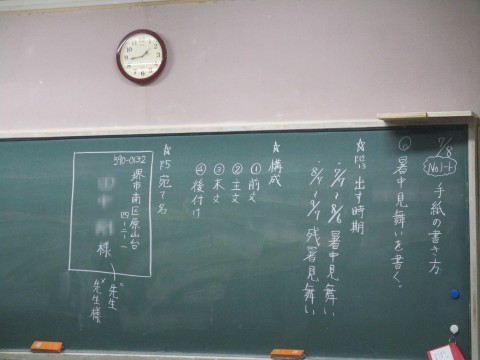 7/8
No1-1
手紙の書き方
◎ 暑中見舞いを書く。
☆ P13 出す時期
・7/7~8/6 暑中見舞い
・8/7~9/7 残暑見舞い
☆ 構成
① 前文
② 主文
③ 末文
④ 後付け
☆ P5 宛て名
590-0132
堺市南区原山台
四-二-一
中
様
先生
先生様